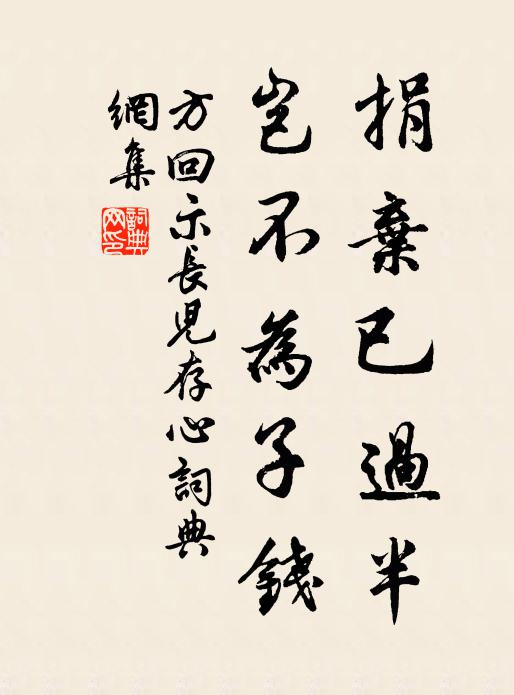 捐棄已過半
豈不為子錢
方回示長兒存心詞典
網集
詞典網印